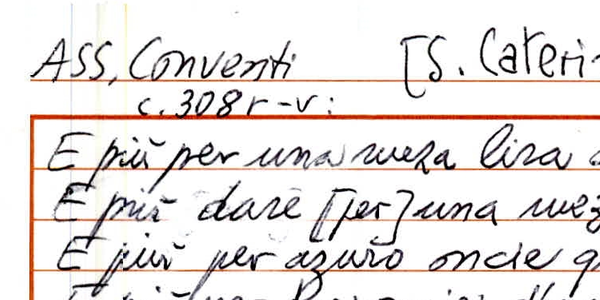 ASS, Conventi [S. Cateri
c. 308 r-v:
E più per una meza lira
E più dare [per] una mez
E più per azuro oncie q
E più per